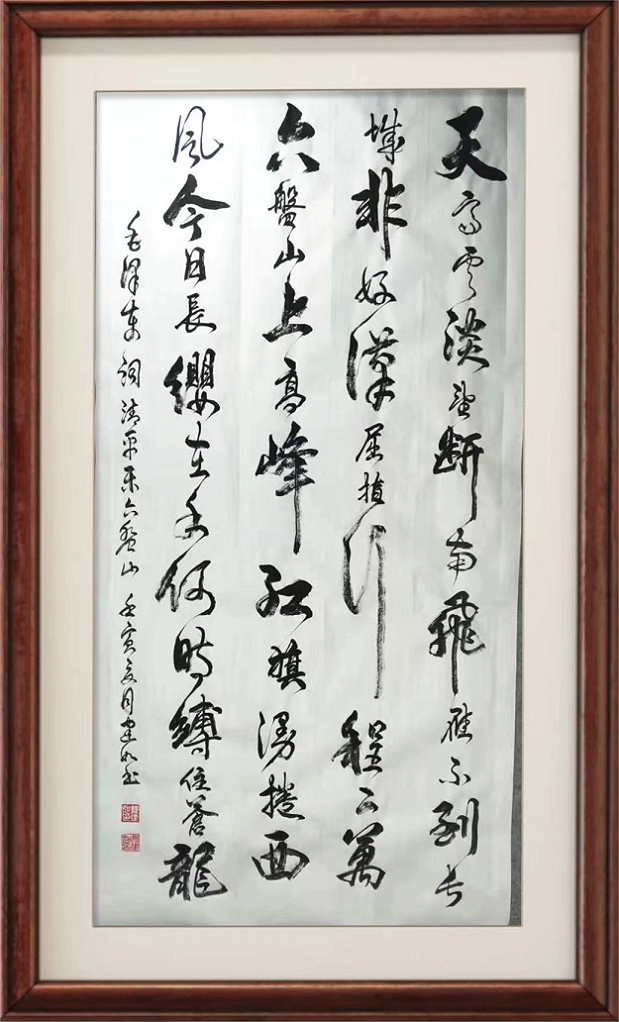 天高雲淡望斷南飛雁不到長
城非好漢屈指行程二萬
六盤山上高峰紅旗漫捲西
風今日長纓在手何時縛住蒼龍
毛澤東詞清平樂六盤山壬寅夏月建如書